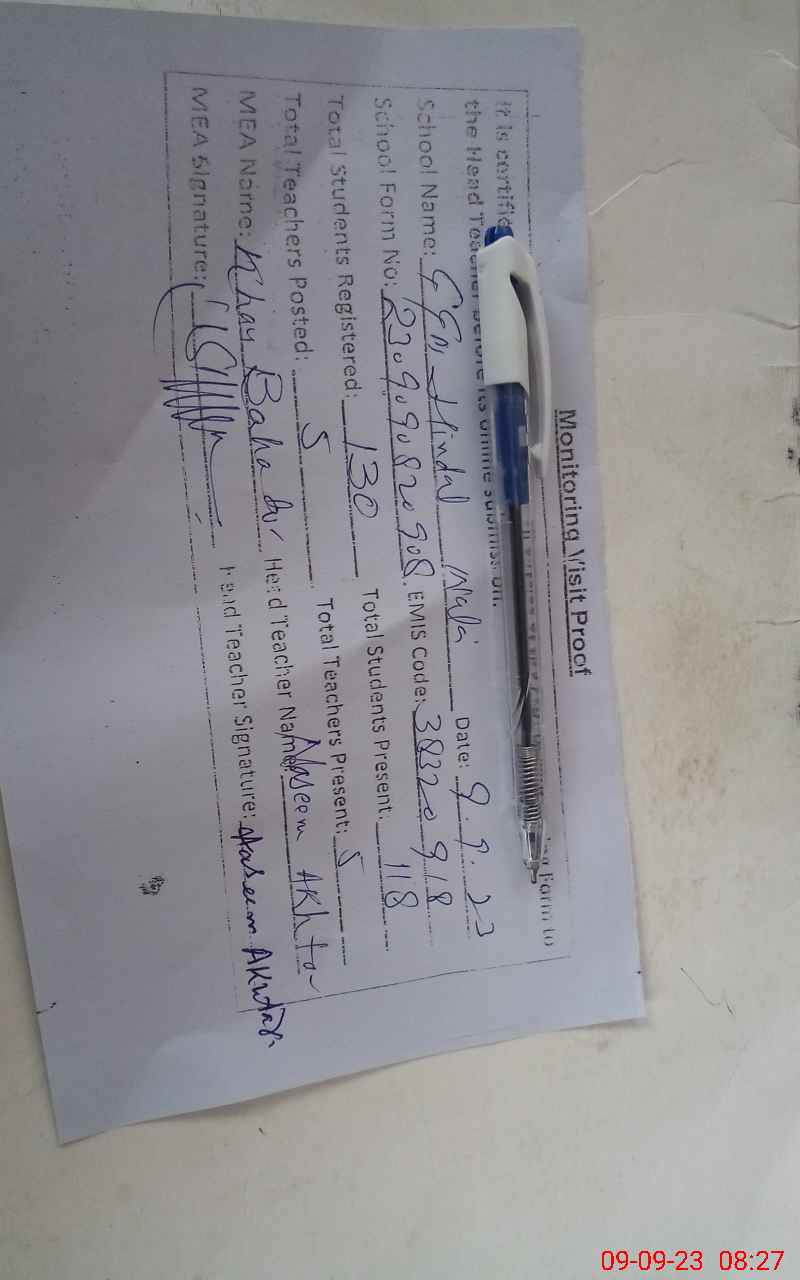 Monitoring Visit Proof
It is certifie Form to
the Head Teacher before its online submission.
School Name: Hindal Wala Date: 9.9.23
School Form No: 2309090820908 EMIS Code: 38320918
Total Students Registered: 130 Total Students Present: 118
Total Teachers Posted: 5 Total Teachers Present: 5
MEA Name: Khan Bahadur Head Teacher Name: Naseem Akhtar
MEA Signature: Head Teacher Signature: Naseem Akhtar
09-09-23 08:27